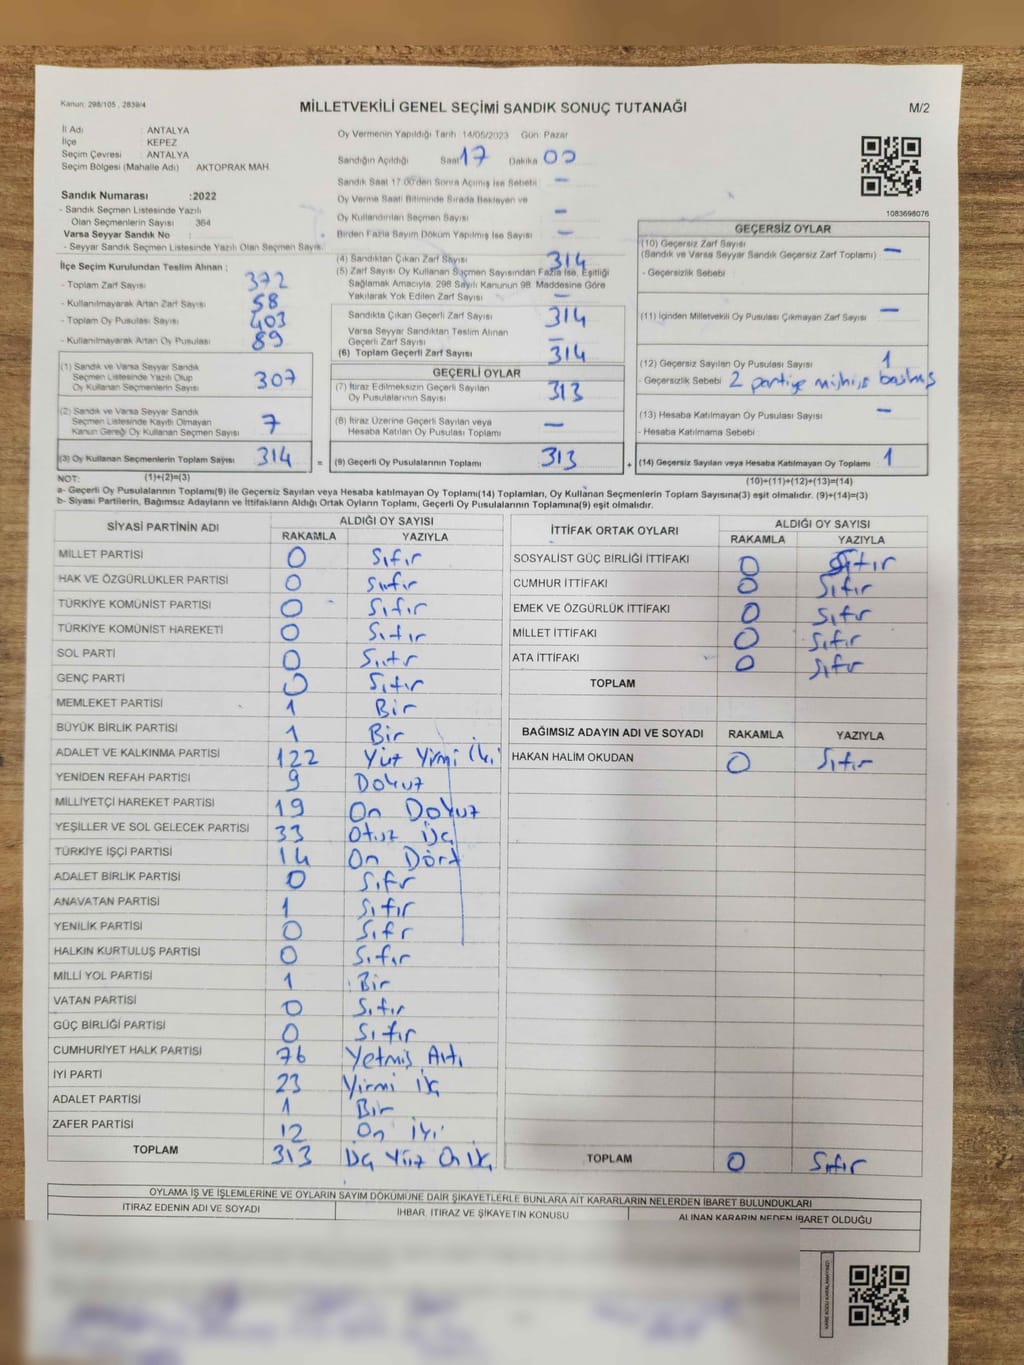 Kanun: 298/105 , 2839/4
MİLLETVEKİLİ GENEL SEÇİMİ SANDIK SONUÇ TUTANAĞI
M/2
İl Adı : ANTALYA
İlçe : KEPEZ
Seçim Çevresi : ANTALYA
Seçim Bölgesi (Mahalle Adı) AKTOPRAK MAH
Sandık Numarası :2022
- Sandık Seçmen Listesinde Yazılı
Olan Seçmenlerin Sayısı : 364
Varsa Seyyar Sandık No :
- Seyyar Sandık Seçmen Listesinde Yazılı Olan Seçmen Sayıs.
Oy Vermenin Yapıldığı Tarih 14/05/2023 Gün: Pazar
Sandığın Açıldığı Saat 17 Dakika 00
Sandık Saat 17.00'den Sonra Açılmış İse Sebebi –
Oy Verme Saati Bitiminde Sırada Bekleyen ve
Oy Kullandırılan Seçmen Sayısı –
Birden Fazla Sayım Döküm Yapılmış İse Sayısı –
1083698076
İlçe Seçim Kurulundan Teslim Alınan :
- Toplam Zarf Sayısı 372
- Kullanılmayarak Artan Zarf Sayısı 58
- Toplam Oy Pusulası Sayısı 403
- Kullanılmayarak Artan Oy Pusulası 89
(1) Sandık ve Varsa Seyyar Sandık
Seçmen Listesinde Yazılı Olup
Oy Kullanan Seçmenlerin Sayısı 307
(2) Sandık ve Varsa Seyyar Sandık
Seçmen Listesinde Kayıtlı Olmayan
Kanun Gereği Oy Kullanan Seçmen Sayısı 7
(3) Oy Kullanan Seçmenlerin Toplam Sayısı 314
(1)+(2)=(3)
(4) Sandıktan Çıkan Zarf Sayısı 314
(5) Zarf Sayısı Oy Kullanan Seçmen Sayısından Fazla İse, Eşitliği
Sağlamak Amacıyla, 298 Sayılı Kanunun 98. Maddesine Göre
Yakılarak Yok Edilen Zarf Sayısı –
Sandıkta Çıkan Geçerli Zarf Sayısı 314
Varsa Seyyar Sandıktan Teslim Alınan
Geçerli Zarf Sayısı –
(6) Toplam Geçerli Zarf Sayısı 314
GEÇERLİ OYLAR
(7) İtiraz Edilmeksizin Geçerli Sayılan
Oy Pusulalarının Sayısı 313
(8) İtiraz Üzerine Geçerli Sayılan veya
Hesaba Katılan Oy Pusulası Toplamı –
= (9) Geçerli Oy Pusulalarının Toplamı 313
GEÇERSİZ OYLAR
(10) Geçersiz Zarf Sayısı
(Sandık ve Varsa Seyyar Sandık Geçersiz Zarf Toplamı) –
- Geçersizlik Sebebi :
(11) İçinden Milletvekili Oy Pusulası Çıkmayan Zarf Sayısı –
(12) Geçersiz Sayılan Oy Pusulası Sayısı 1
- Geçersizlik Sebebi : 2 partiye basılmış
(13) Hesaba Katılmayan Oy Pusulası Sayısı –
- Hesaba Katılmama Sebebi :
+ (14) Geçersiz Sayılan veya Hesaba Katılmayan Oy Toplamı 1
(10)+(11)+(12)+(13)=(14)
NOT:
a- Geçerli Oy Pusulalarının Toplamı(9) ile Geçersiz Sayılan veya Hesaba katılmayan Oy Toplamı(14) Toplamları, Oy Kullanan Seçmenlerin Toplam Sayısına(3) eşit olmalıdır. (9)+(14)=(3)
b- Siyasi Partilerin, Bağımsız Adayların ve İttifakların Aldığı Ortak Oyların Toplamı, Geçerli Oy Pusulalarının Toplamına(9) eşit olmalıdır.
SİYASİ PARTİNİN ADI ALDIĞI OY SAYISI
RAKAMLA YAZIYLA
MİLLET PARTİSİ 0 Sıfır
HAK VE ÖZGÜRLÜKLER PARTİSİ 0 Sıfır
TÜRKİYE KOMÜNİST PARTİSİ 0 Sıfır
TÜRKİYE KOMÜNİST HAREKETİ 0 Sıfır
SOL PARTİ 0 Sıfır
GENÇ PARTİ 0 Sıfır
MEMLEKET PARTİSİ 1 Bir
BÜYÜK BİRLİK PARTİSİ 1 Bir
ADALET VE KALKINMA PARTİSİ 122 Yüz Yirmi İki
YENİDEN REFAH PARTİSİ 9 Dokuz
MİLLİYETÇİ HAREKET PARTİSİ 19 On Dokuz
YEŞİLLER VE SOL GELECEK PARTİSİ 33 Otuz Üç
TÜRKİYE İŞÇİ PARTİSİ 14 On Dört
ADALET BİRLİK PARTİSİ 0 Sıfır
ANAVATAN PARTİSİ 1 Sıfır
YENİLİK PARTİSİ 0 Sıfır
HALKIN KURTULUŞ PARTİSİ 0 Sıfır
MİLLİ YOL PARTİSİ 1 Bir
VATAN PARTİSİ 0 Sıfır
GÜÇ BİRLİĞİ PARTİSİ 0 Sıfır
CUMHURİYET HALK PARTİSİ 76 Yetmiş Altı
İYİ PARTİ 23 Yirmi Üç
ADALET PARTİSİ 1 Bir
ZAFER PARTİSİ 12 On İki
TOPLAM 313 Üç Yüz On Üç
İTTİFAK ORTAK OYLARI ALDIĞI OY SAYISI
RAKAMLA YAZIYLA
SOSYALİST GÜÇ BİRLİĞİ İTTİFAKI 0 Sıfır
CUMHUR İTTİFAKI 0 Sıfır
EMEK VE ÖZGÜRLÜK İTTİFAKI 0 Sıfır
MİLLET İTTİFAKI 0 Sıfır
ATA İTTİFAKI 0 Sıfır
TOPLAM
BAĞIMSIZ ADAYIN ADI VE SOYADI RAKAMLA YAZIYLA
HAKAN HALİM OKUDAN 0 Sıfır
TOPLAM 0 Sıfır
OYLAMA İŞ VE İŞLEMLERİNE VE OYLARIN SAYIM DÖKÜMÜNE DAİR ŞİKAYETLERLE BUNLARA AİT KARARLARIN NELERDEN İBARET BULUNDUKLARI
İTİRAZ EDENİN ADI VE SOYADI İHBAR, İTİRAZ VE ŞİKAYETİN KONUSU ALINAN KARARIN NEDEN İBARET OLDUĞU